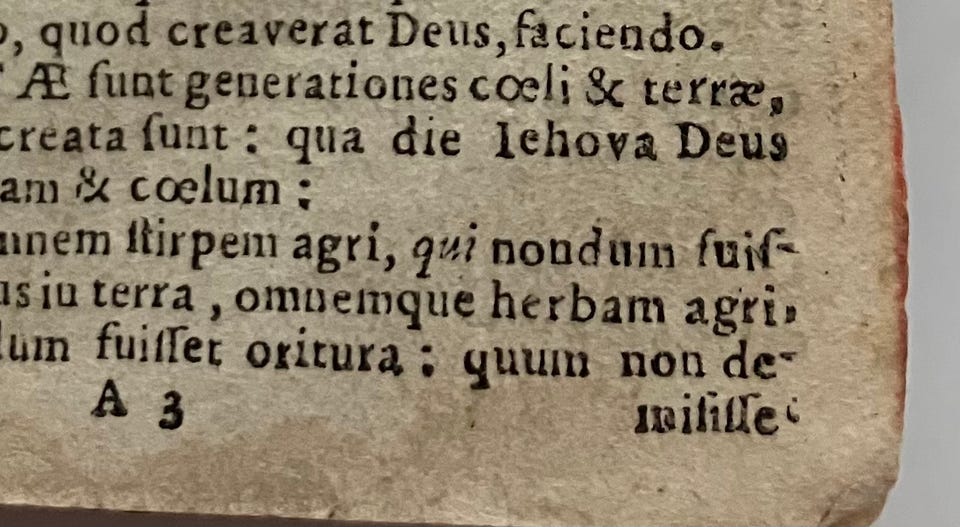 , quod creaverat Deus, faciendo.
Æ ſunt generationes cœli & terræ,
creata ſunt : qua die Iehova Deus
am & cœlum :
mnem ſtirpem agri, qui nondum fuiſ-
us in terra , omnemque herbam agri,
dum fuiſſet oritura : quum non de-
A 3
miſiſſet